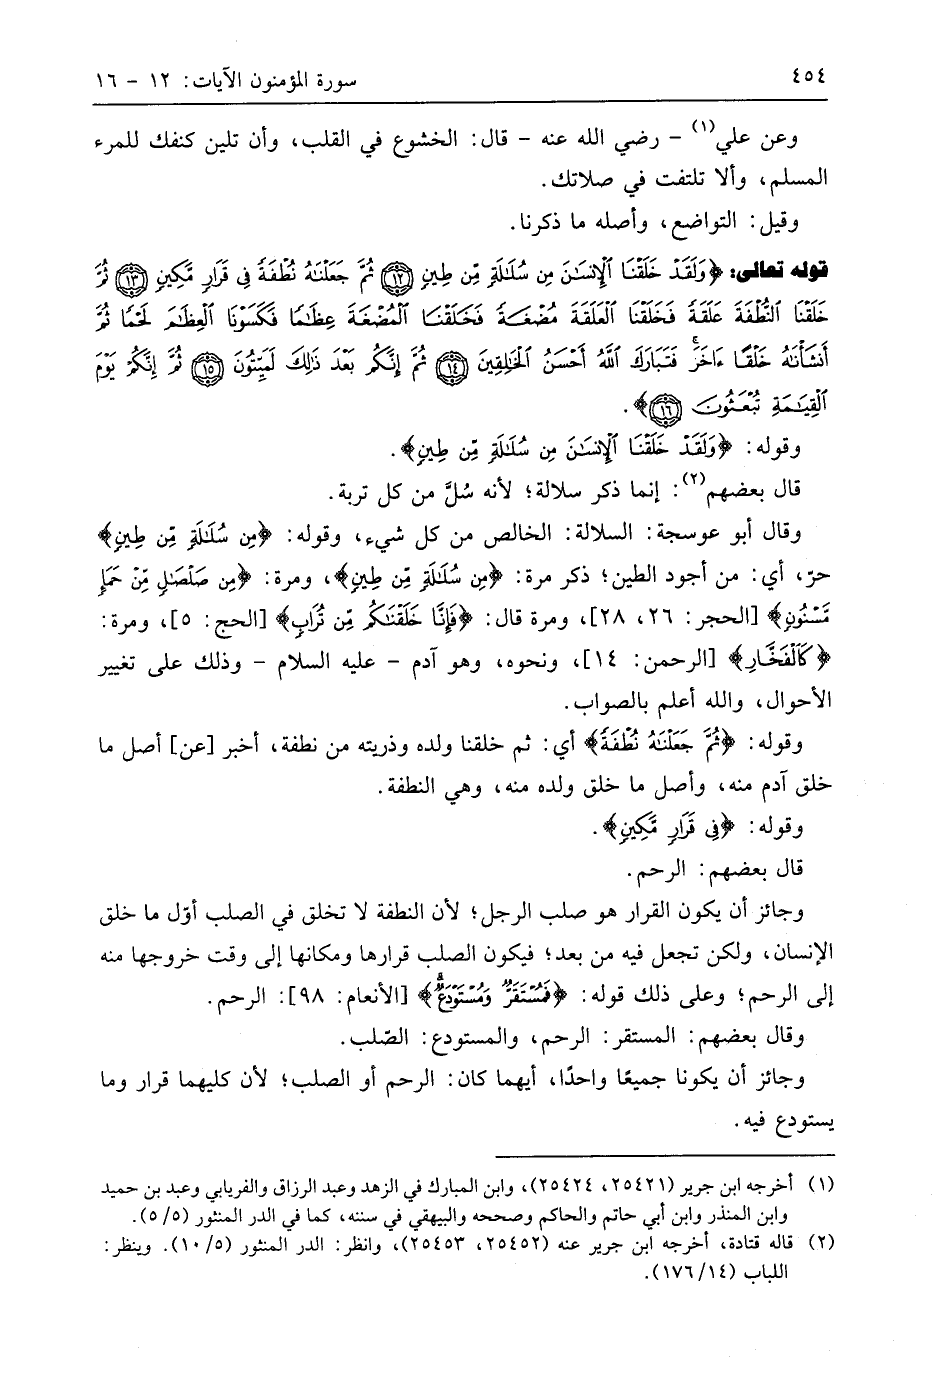 ٤٥٤
سورة المؤمنون الآيات: ١٢ - ١٦
وعن علي(١) - رضي الله عنه - قال: الخشوع في القلب، وأن تلين كنفك للمرء
المسلم، وألا تلتفت في صلاتك.
وقيل: التواضع، وأصله ما ذكرنا.
قوله تعالى: ﴿وَلَقَدْ خَلَقْنَا ٱلْإِنسَٰنَ مِن سُلَٰلَةٍ مِّن طِينٍ ۝١٢ ثُمَّ جَعَلْنَٰهُ نُطْفَةً فِى قَرَارٍ مَّكِينٍ ۝١٣ ثُمَّ
خَلَقْنَا ٱلنُّطْفَةَ عَلَقَةً فَخَلَقْنَا ٱلْعَلَقَةَ مُضْغَةً فَخَلَقْنَا ٱلْمُضْغَةَ عِظَٰمًا فَكَسَوْنَا ٱلْعِظَٰمَ لَحْمًا ثُمَّ
أَنشَأْنَٰهُ خَلْقًا ءَاخَرَ ۚ فَتَبَارَكَ ٱللَّهُ أَحْسَنُ ٱلْخَٰلِقِينَ ۝١٤ ثُمَّ إِنَّكُم بَعْدَ ذَٰلِكَ لَمَيِّتُونَ ۝١٥ ثُمَّ إِنَّكُمْ يَوْمَ
ٱلْقِيَٰمَةِ تُبْعَثُونَ ۝١٦﴾.
وقوله: ﴿وَلَقَدْ خَلَقْنَا ٱلْإِنسَٰنَ مِن سُلَٰلَةٍ مِّن طِينٍ﴾.
قال بعضهم(٢): إنما ذكر سلالة؛ لأنه سُلَّ من كل تربة.
وقال أبو عوسجة: السلالة: الخالص من كل شيء، وقوله: ﴿مِن سُلَٰلَةٍ مِّن طِينٍ﴾
حرّ، أي: من أجود الطين؛ ذكر مرة: ﴿مِن سُلَٰلَةٍ مِّن طِينٍ﴾، ومرة: ﴿مِن صَلْصَٰلٍ مِّنْ حَمَإٍ
مَّسْنُونٍ﴾ [الحجر: ٢٦، ٢٨]، ومرة قال: ﴿فَإِنَّا خَلَقْنَٰكُم مِّن تُرَابٍ﴾ [الحج: ٥]، ومرة:
﴿كَٱلْفَخَّارِ﴾ [الرحمن: ١٤]، ونحوه، وهو آدم - عليه السلام - وذلك على تغيير
الأحوال، والله أعلم بالصواب.
وقوله: ﴿ثُمَّ جَعَلْنَٰهُ نُطْفَةً﴾ أي: ثم خلقنا ولده وذريته من نطفة، أخبر [عن] أصل ما
خلق آدم منه، وأصل ما خلق ولده منه، وهي النطفة.
وقوله: ﴿فِى قَرَارٍ مَّكِينٍ﴾.
قال بعضهم: الرحم.
وجائز أن يكون القرار هو صلب الرجل؛ لأن النطفة لا تخلق في الصلب أوّل ما خلق
الإنسان، ولكن تجعل فيه من بعد؛ فيكون الصلب قرارها ومكانها إلى وقت خروجها منه
إلى الرحم؛ وعلى ذلك قوله: ﴿فَمُسْتَقَرٌّ وَمُسْتَوْدَعٌ﴾ [الأنعام: ٩٨]: الرحم.
وقال بعضهم: المستقر: الرحم، والمستودع: الصّلب.
وجائز أن يكونا جميعًا واحدًا، أيهما كان: الرحم أو الصلب؛ لأن كليهما قرار وما
يستودع فيه.
(١) أخرجه ابن جرير (٢٥٤٢١، ٢٥٤٢٤)، وابن المبارك في الزهد وعبد الرزاق والفريابي وعبد بن حميد
وابن المنذر وابن أبي حاتم والحاكم وصححه والبيهقي في سننه، كما في الدر المنثور (٥/٥).
(٢) قاله قتادة، أخرجه ابن جرير عنه (٢٥٤٥٢، ٢٥٤٥٣)، وانظر: الدر المنثور (١٠/٥). وينظر:
اللباب (١٧٦/١٤).